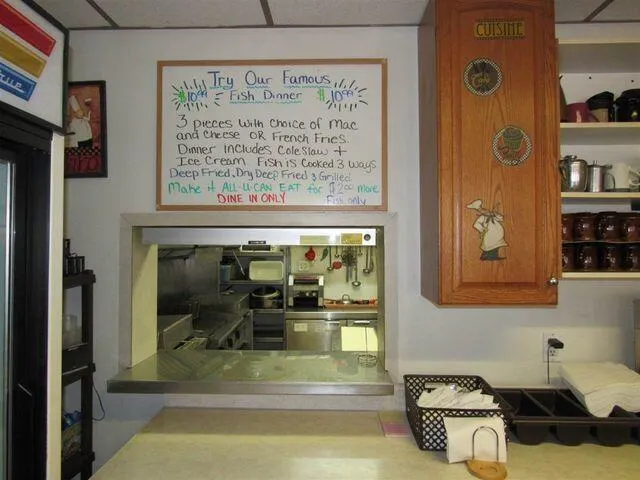 Try Our Famous
$10.99 Fish Dinner $10.99
3 pieces with choice of Mac
and cheese OR French Fries.
Dinner includes Coleslaw +
Ice Cream Fish is Cooked 3 ways
Deep Fried, Dry Deep Fried & Grilled
Make it ALL-U-CAN EAT for $2.00 more
DINE IN ONLY Fish only
CUISINE